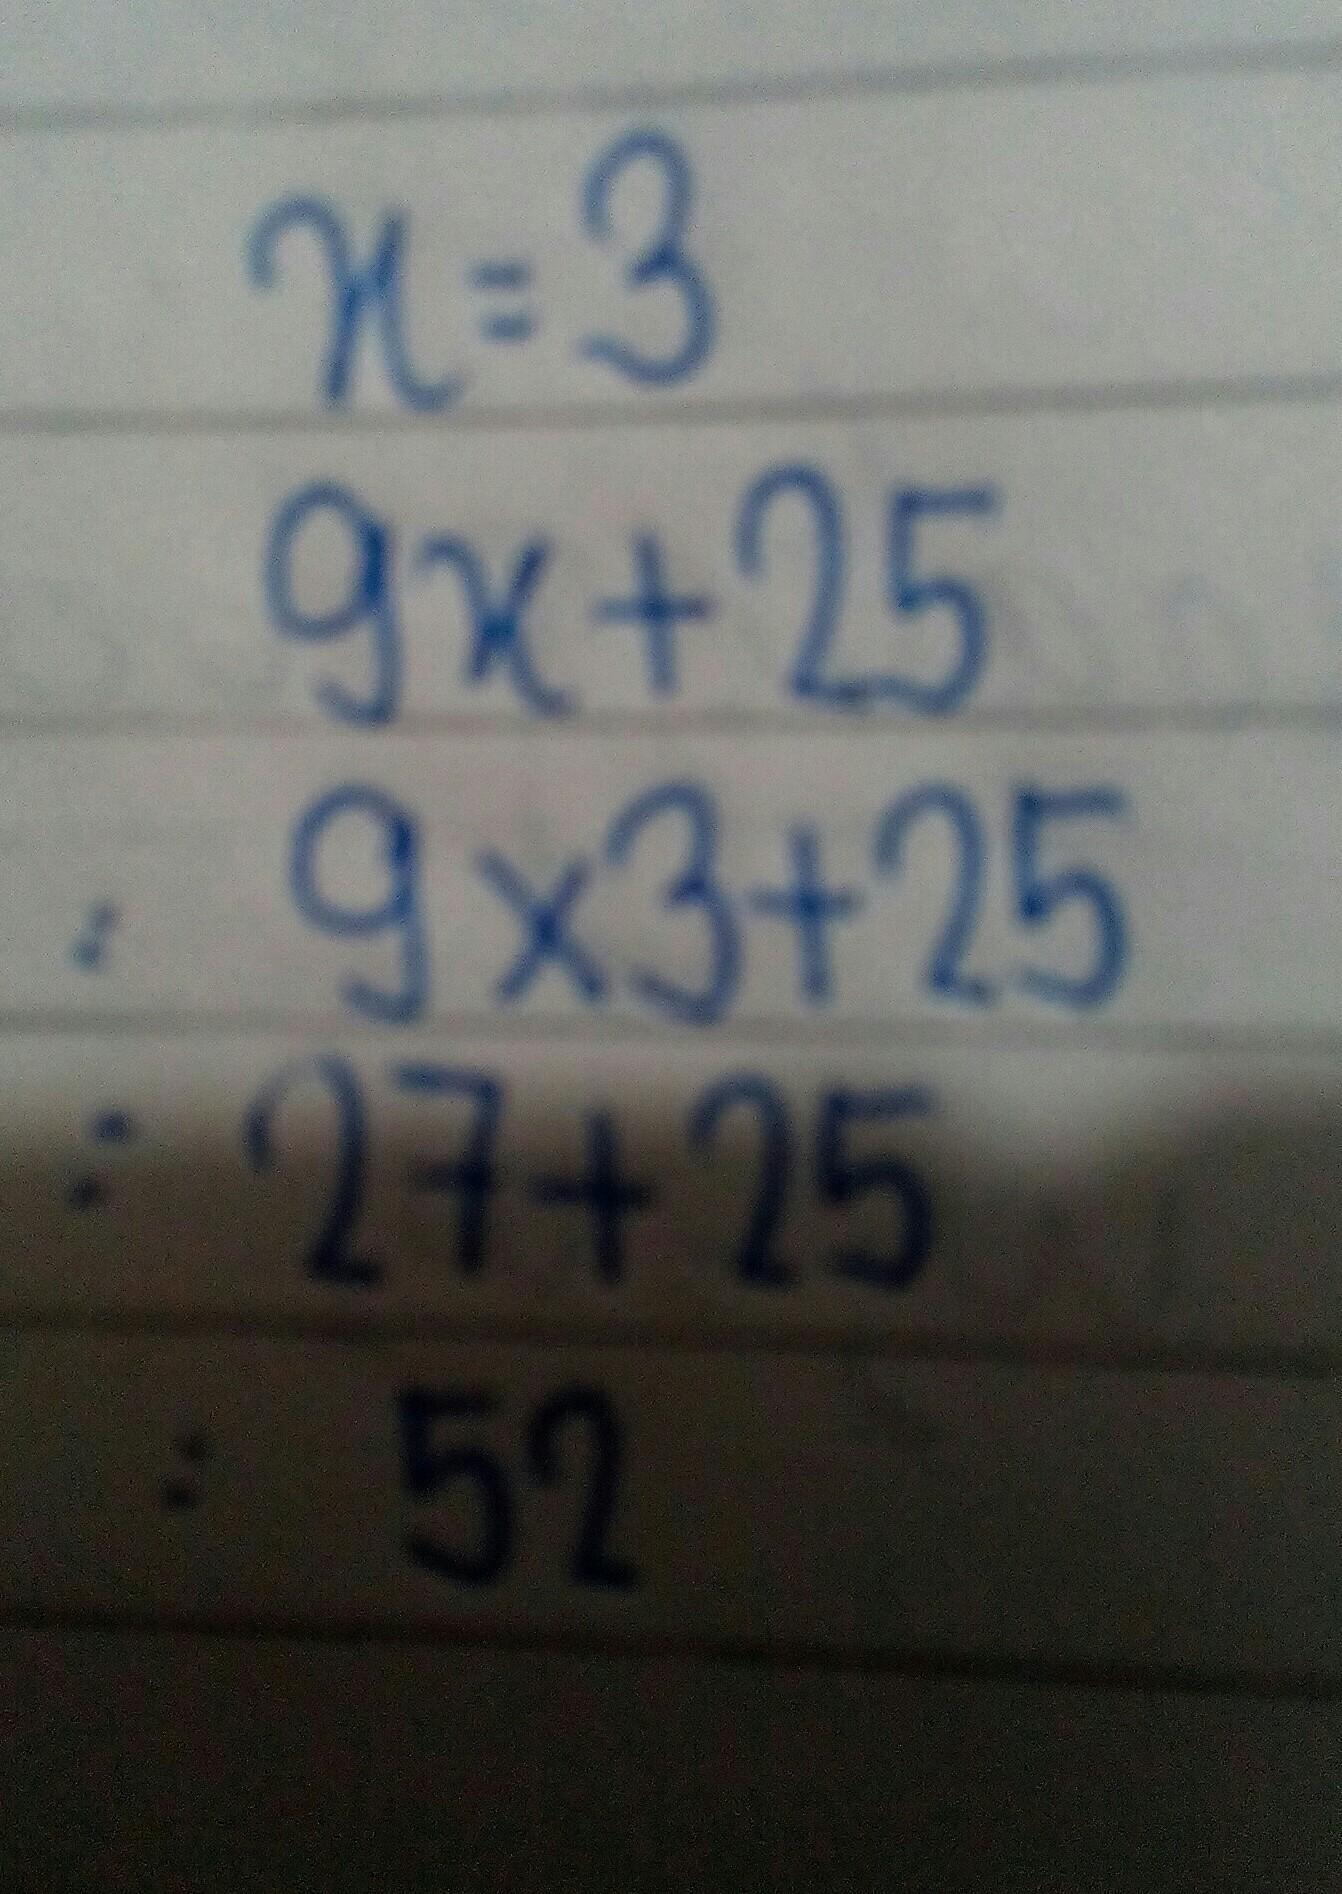 x = 3
9x + 25
= 9 × 3 + 25
= 27 + 25
= 52